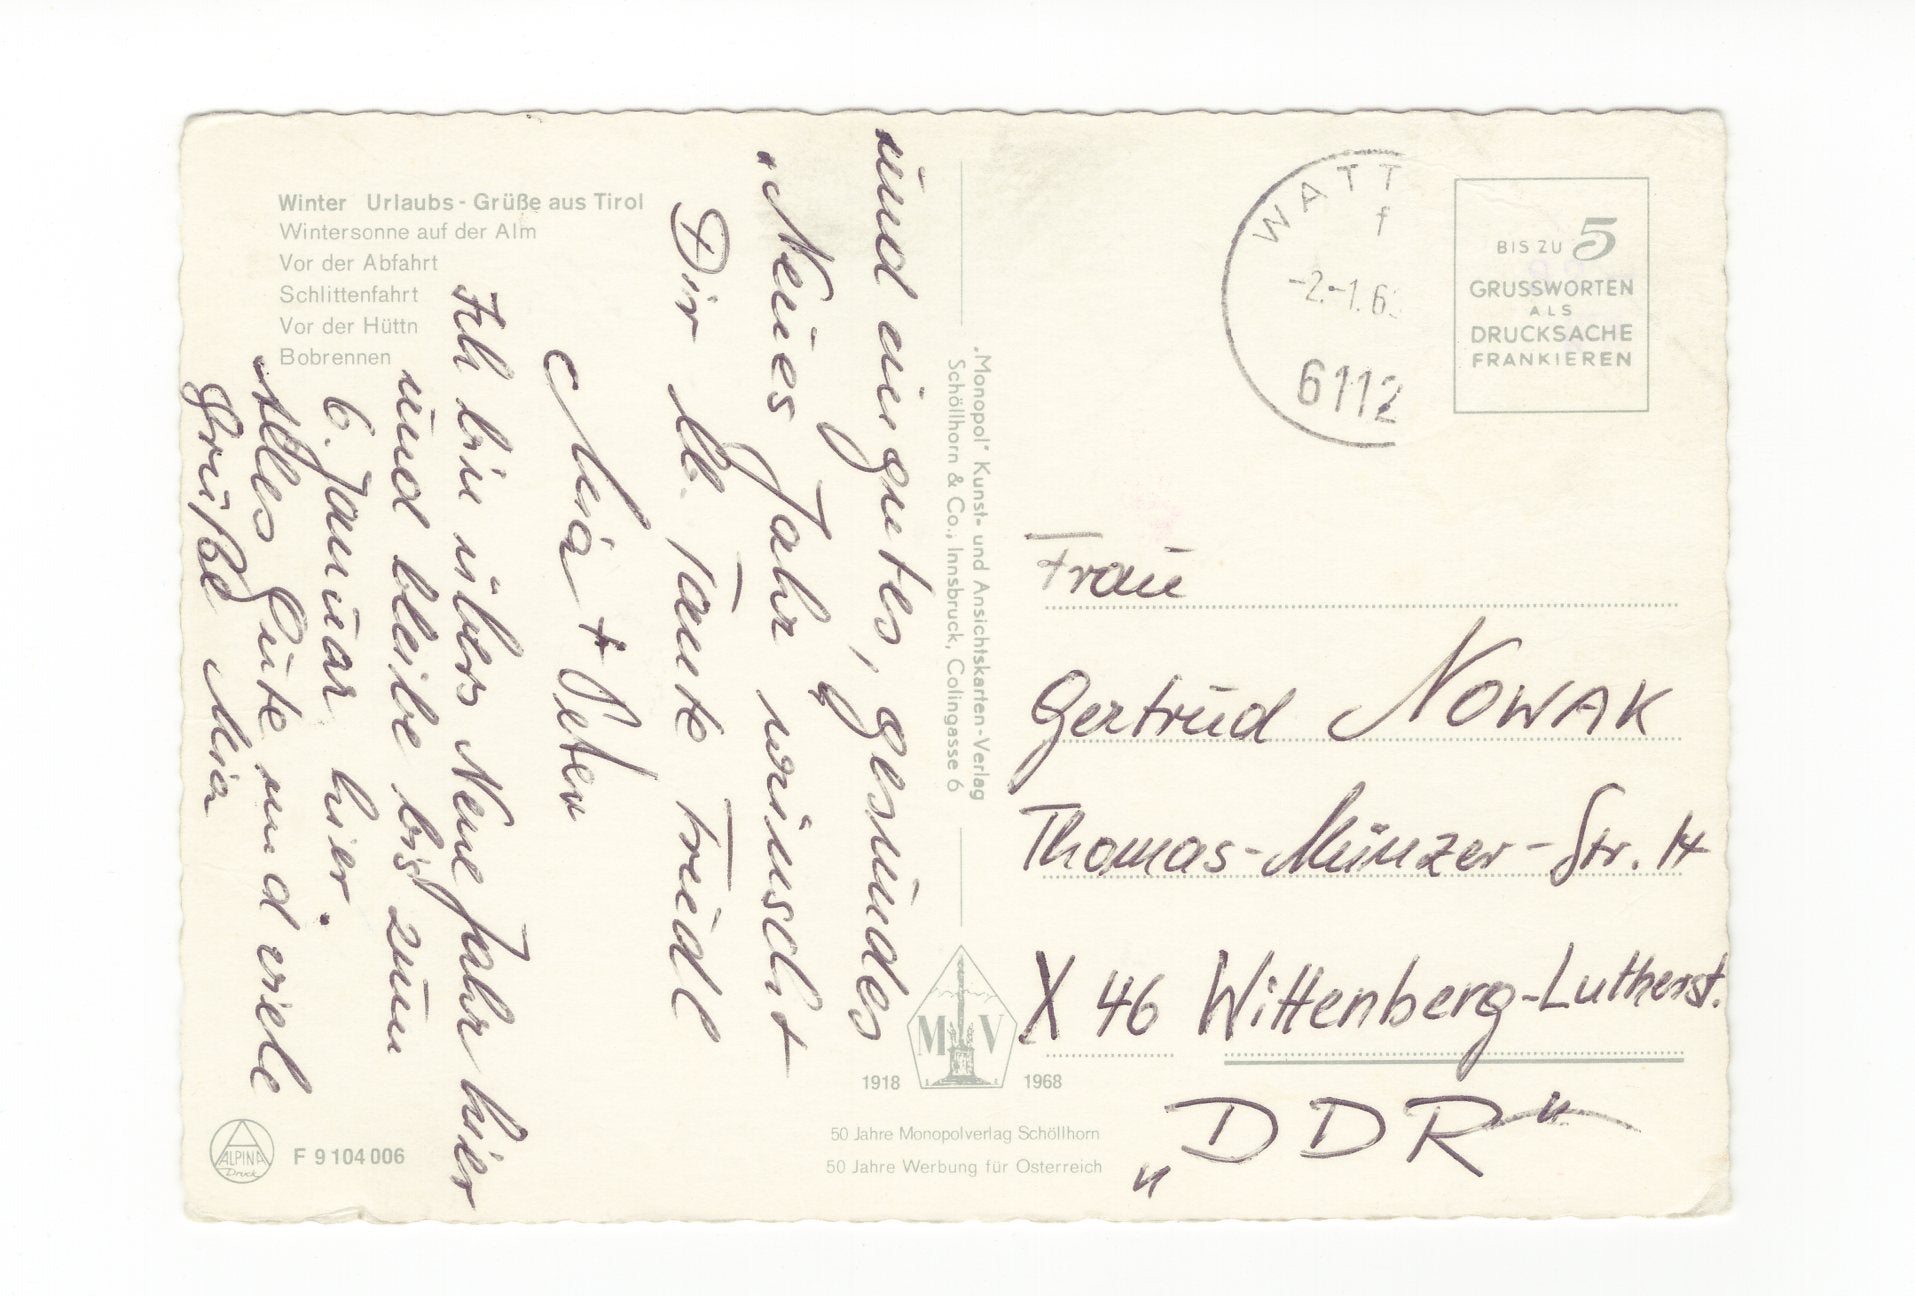 Winter Urlaubs-Grüße aus Tirol
Wintersonne auf der Alm
Vor der Abfahrt
Schlittenfahrt
Vor der Hüttn
Bobrennen
und ein gutes, gesundes
"Neues Jahr wünscht
Dir lb. Tante Friedl
Mia + Peter
Ich bin übers Neue Jahr hier
und bleibe bis zum
6. Januar hier.
Alles Gute und viele
Grüße Mia
"Monopol" Kunst- und Ansichtskarten-Verlag
Schöllhorn & Co., Innsbruck, Colingasse 6
WATT
f
-2.-1.6
6112
BIS ZU 5
GRUSSWORTEN
ALS
DRUCKSACHE
FRANKIEREN
Frau
Gertrud NOWAK
Thomas-Münzer-Str. 14
X 46 Wittenberg-Lutherst.
"DDR"
M V
1918 1968
50 Jahre Monopolverlag Schöllhorn
50 Jahre Werbung für Österreich
ALPINA
Druck
F 9 104 006